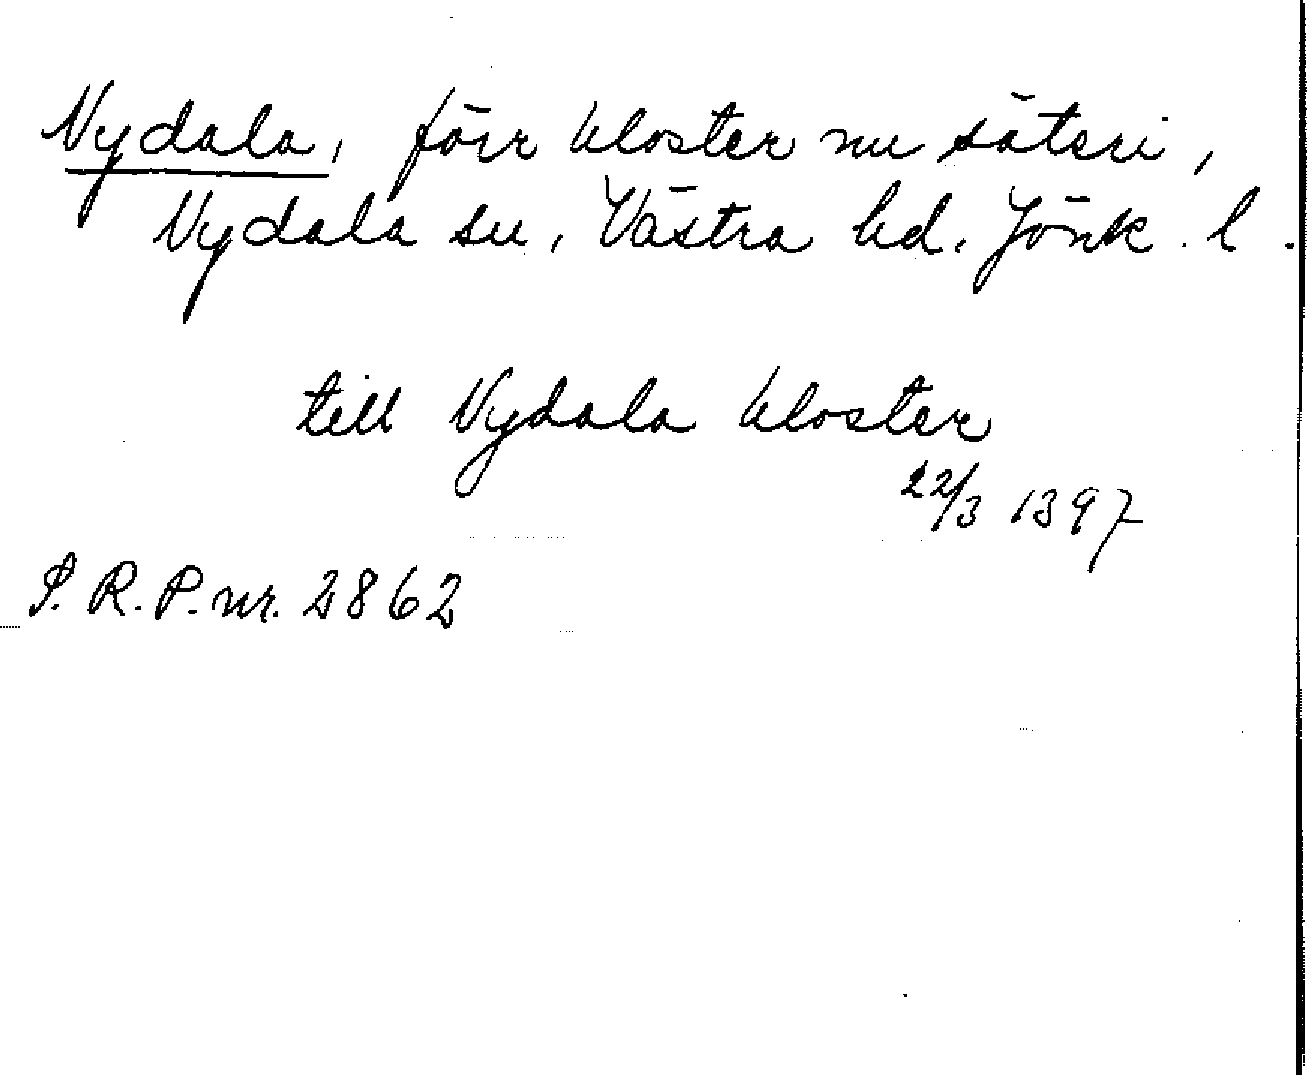 Nydala, förr kloster nu säteri,
Nydala sn, Västra hd. Jönk. l.
till Nydala kloster
22/3 1397
S. R. P. nr. 2862